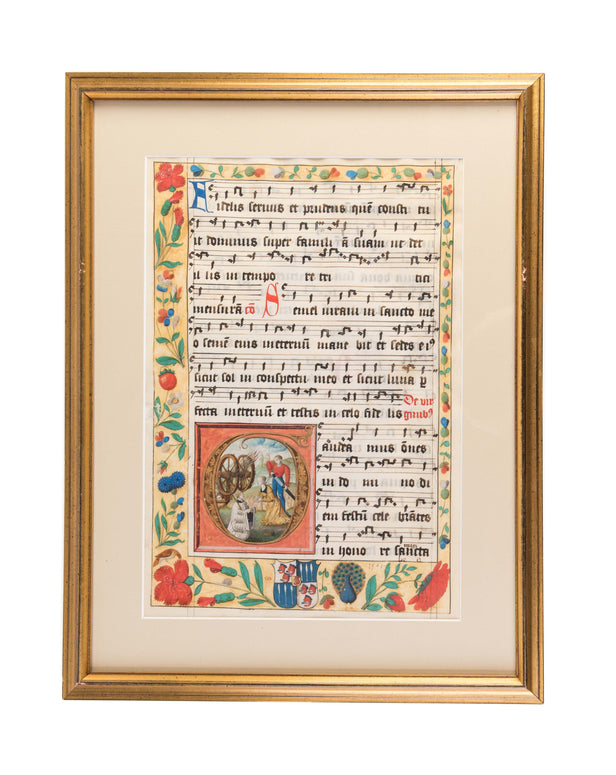 Fidelis servus et prudens quē consti tu
it dominus super famili ā suam ut det
il lis in tempo re tri tici
mensurā cō Semel iuravi in sancto me
o semē eius ineternū mane bit et sedes ei⁹
sicut sol in conspectu meo et sicut luna p
fecta ineternū et testis in celo fide lis
De vir
ginib⁹
Gaudea mus ōnes
in do mi no di
em festū cele brātes
in hono re sancta